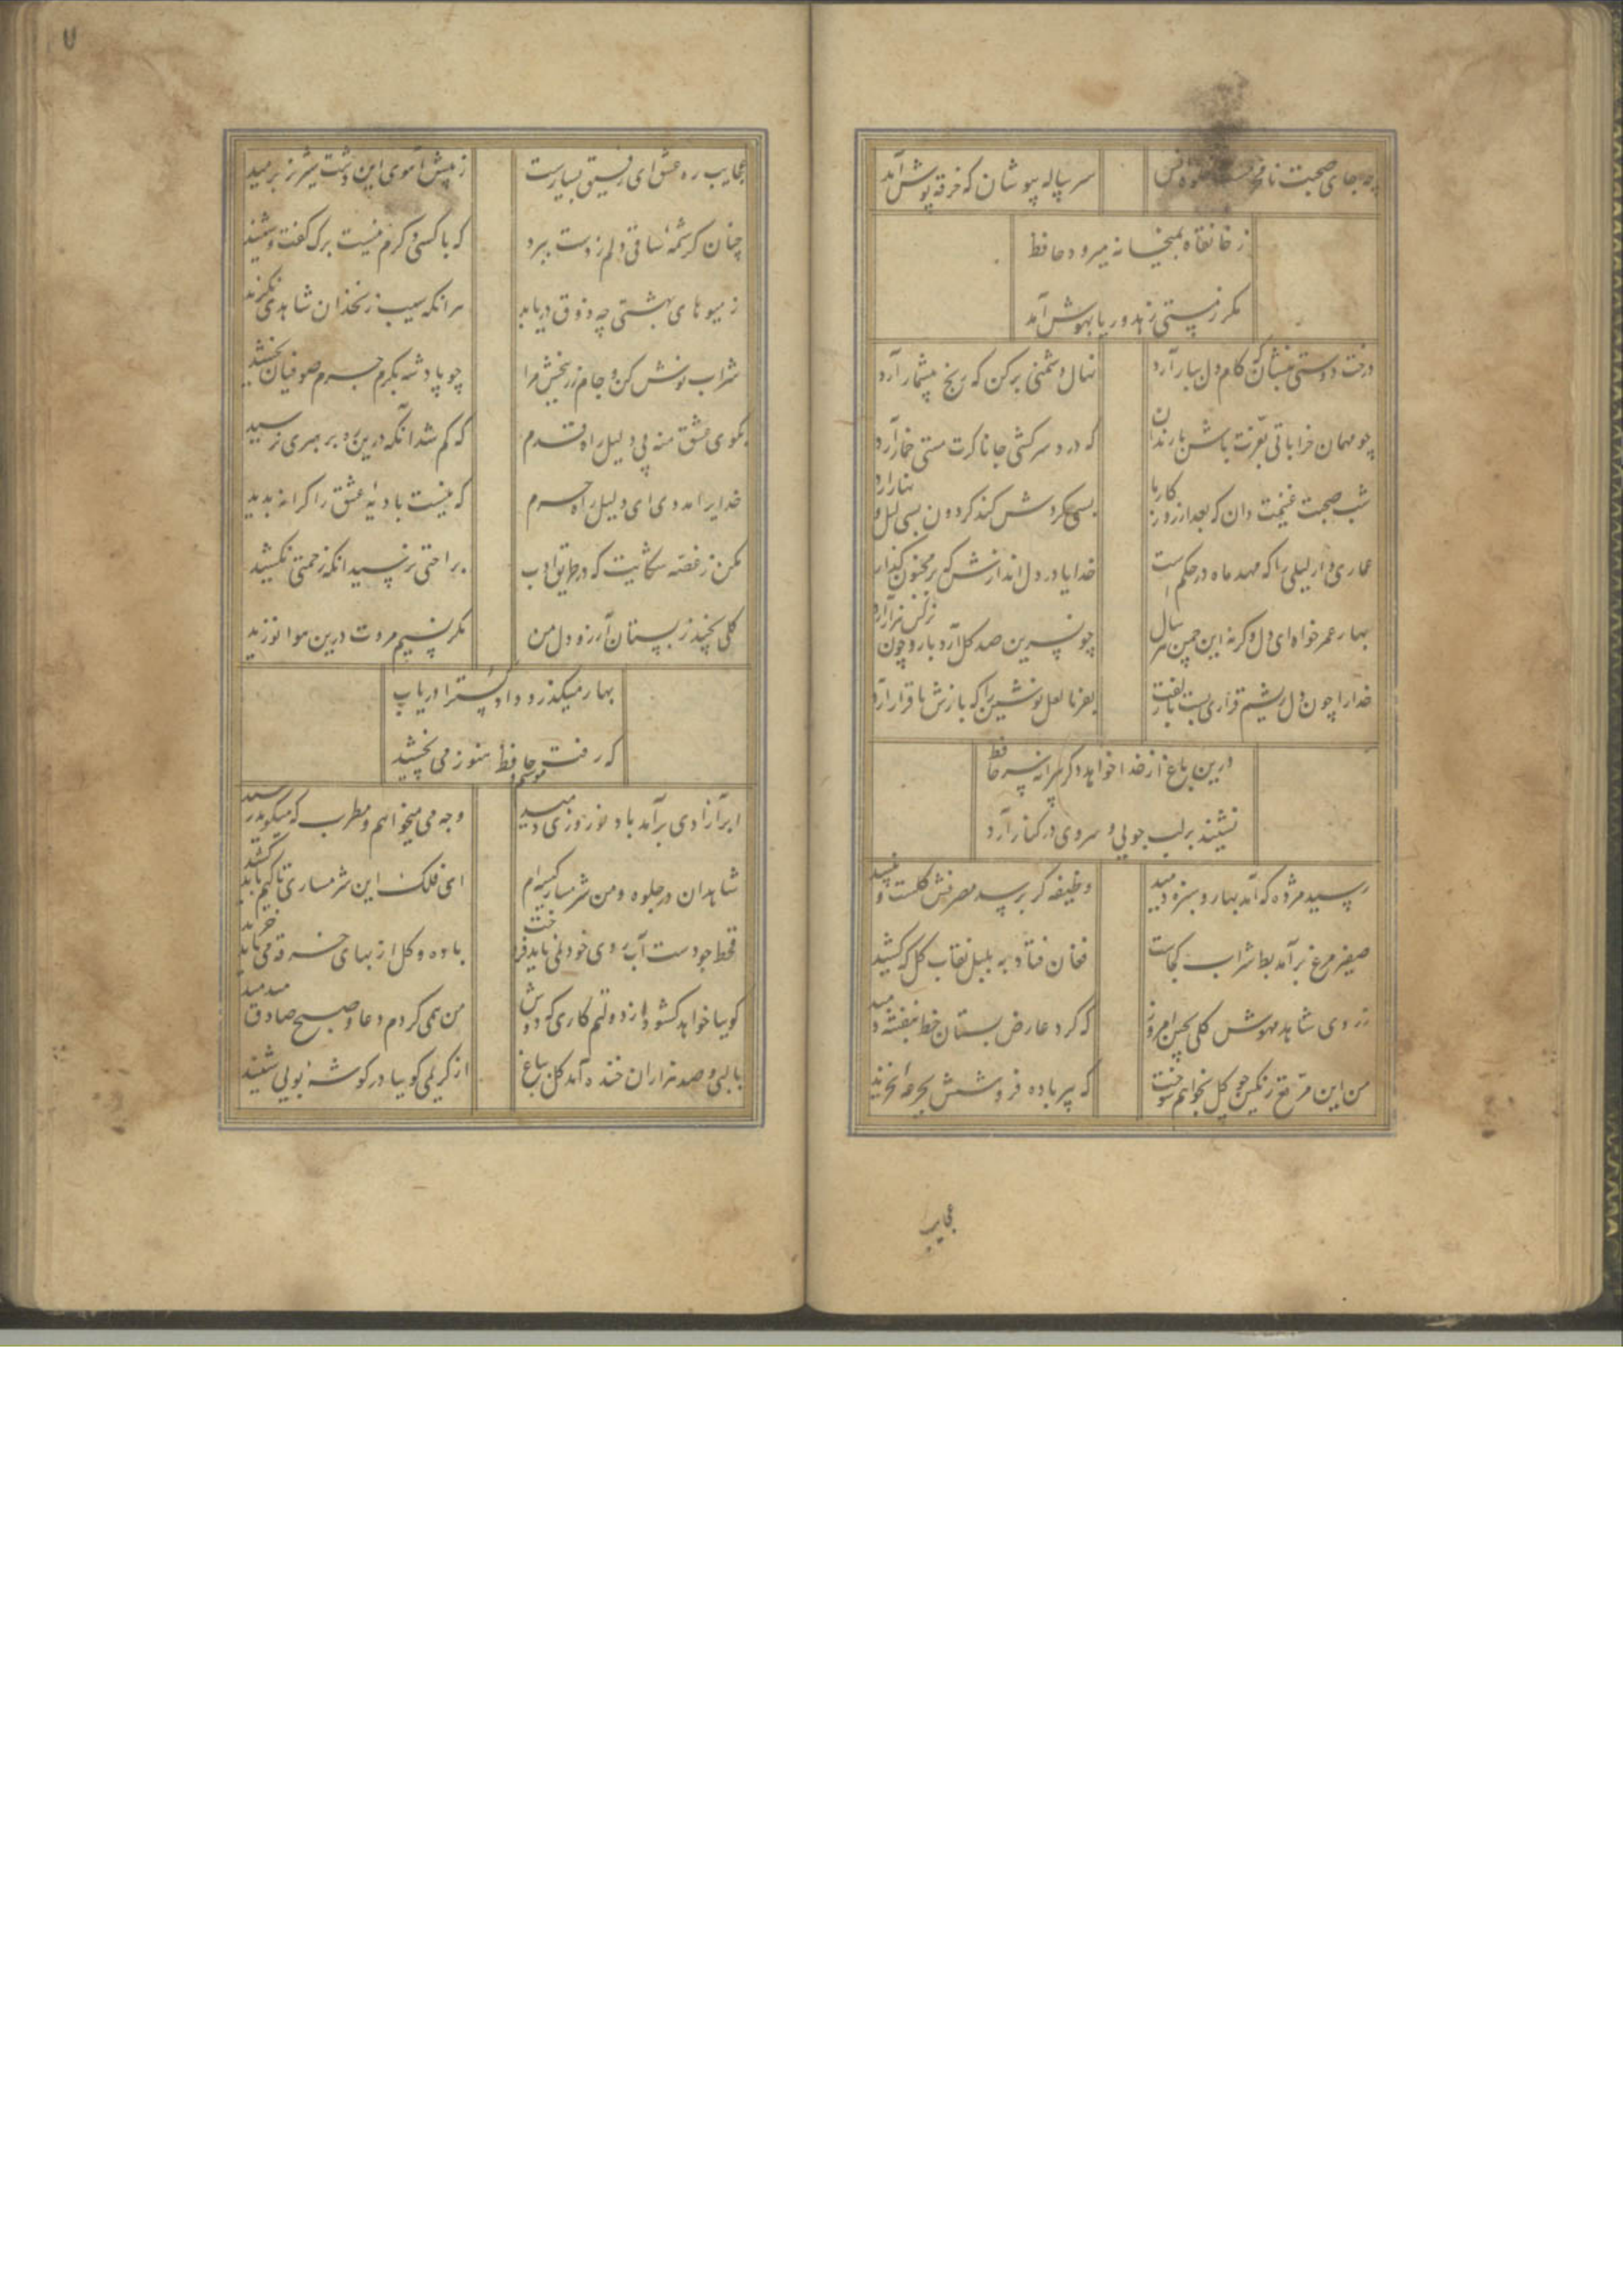 چه جای صحبت نامحرمست
سر پیاله بپوشان که خرقه پوش آمد
ز خانقاه بمیخانه میرود حافظ
مکر ز مستی زهد و ریا بهوش آمد
درخت دوستی بنشان که کام دل ببار آرد
نهال دشمنی برکن که رنج بیشمار آرد
چو مهمان خراباتی بعزت باش با رندان
که درد سر کشی جانا کرت مستی خمار آرد
شب صحبت غنیمت دان که بعد از روزکار ما
بسی کردش کند کردون بسی لیل و نهار آرد
عماری دار لیلی را که مهد ماه در حکمست
خدایا در دل اندازش که بر مجنون کذار آرد
بهار عمر خواه ای دل وکرنه این چمن هر سال
چو نسرین صد کل آرد بار و چون نرکس هزار آرد
خدا را چون دل ریشم قراری بست با زلفت
بفرما لعل نوشین را که بازش با قرار آرد
درین باغ از خدا خواهد دکر پیرانه سر حافظ
نشیند بر لب جویی و سروی در کنار آرد
رسید مژده که آمد بهار و سبزه دمید
وظیفه کر برسد مصرفش کلست و نبید
صفیر مرغ برآمد بط شراب کجاست
فغان فتاد به بلبل نقاب کل که کشید
ز روی شاهد مهوش کلی بچین امروز
که کرد عارض بستان خط بنفشه دمید
من این مرقع رنکین چو کل بخواهم سوخت
که پیر باده فروشش بجرعه نخرید
عجایب
۷
عجایب ره عشق ای رفیق بسیارست
ز پیش آهوی این دشت شیر نر برمید
چنان کرشمه ساقی دلم ز دست ببرد
که با کسی دکرم نیست برک کفت و شنید
ز میوهای بهشتی چه ذوق دریابد
هر انکه سیب زنخدان شاهدی نکزید
شراب نوش کن و جام زر بخش مرا
چو پادشه بکرم جرم صوفیان بخشید
بکوی عشق منه بی دلیل راه قدم
که کم شد آنکه درین ره برهبری نرسید
خدایرا مددی ای دلیل راه حرم
که نیست بادیه عشق را کرانه پدید
مکن ز غصه شکایت که در طریق ادب
براحتی نرسید انکه زحمتی نکشید
کلی نچید ز بستان آرزو دل من
مکر نسیم مروت درین هوا نوزید
بهار میکذرد دادکسترا دریاب
که رفت موسم و حافظ هنوز می نچشید
ابر آزادی برآمد باد نوروزی وزید
وجه می میخواهم و مطرب که میکوید رسید
شاهدان در جلوه و من شرمسار کیسه ام
ای فلک این شرمساری تا کیم باید کشید
قحط جودست آب روی خود نمی باید فروخت
باده و کل از بهای خرقه می باید خرید
کوییا خواهد کشود از دولتم کاری که دوش
من همی کردم دعا و صبح صادق میدمید
با لبی و صد هزاران خنده آمد کل بباغ
از کریمی کوییا در کوشه بویی شنید